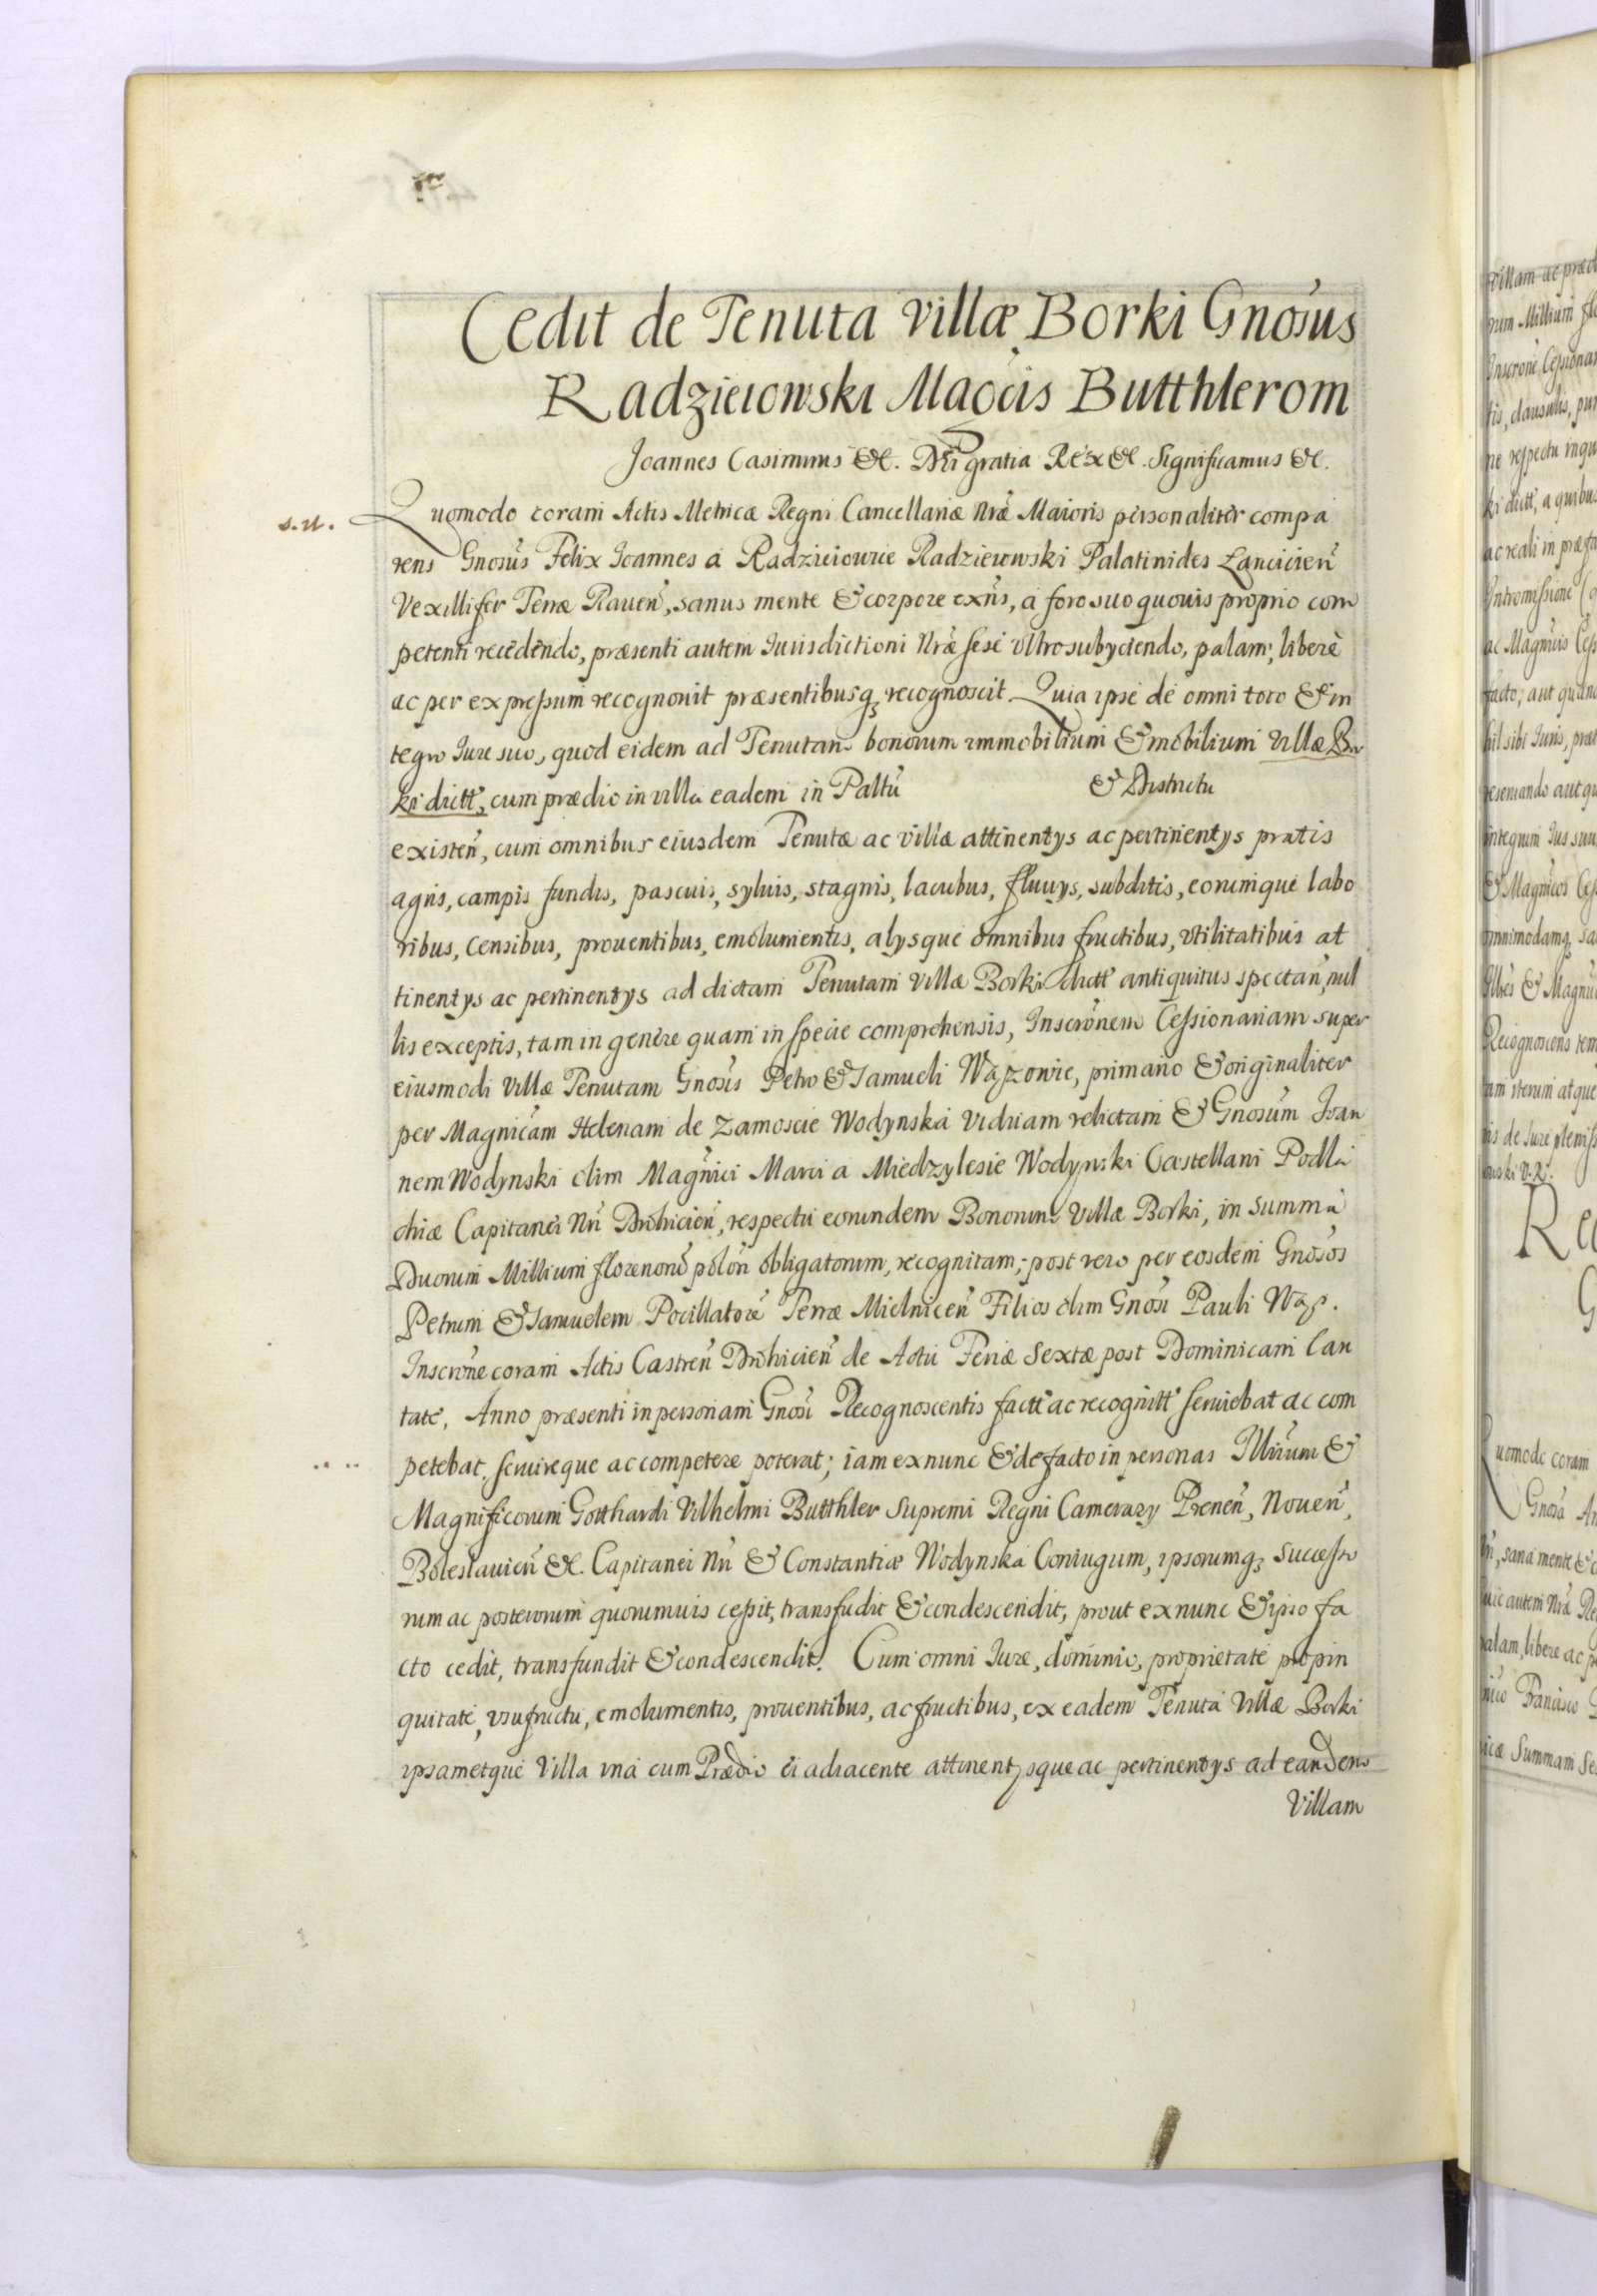 Cedit de Tenuta villæ Borki Gnosus
Radzieiowski Magcis Butthlerom
Joannes Casimirus &c. Dei gratia Rex &c. Significamus &c.
s.u.
Quomodo coram Actis Metricæ Regni Cancellariæ Nræ Maioris personaliter compa
rens Gnosus Felix Joannes a Radzieiowice Radzieiowski Palatinides Lancicien
Vexillifer Terræ Rauen, sanus mente & corpore exns, a foro suo quouis proprio com
petenti recedendo, præsenti autem Jurisdictioni Nræ sese vltro subyciendo, palam, liberè
ac per expressum recognouit præsentibusq recognoscit. Quia ipse de omni toto & in
tegro Jure suo, quod eidem ad Tenutam bonorum immobilium & mobilium villæ Bor
ki dictt, cum prædio in villa eadem in Palttu & Districtu
existen, cum omnibus eiusdem Tenutæ ac villæ attinentys ac pertinentys pratis
agris, campis fundis, pascuis, syluis, stagnis, lacubus, fluuys, subditis, eorumque labo
ribus, censibus, prouentibus, emolumentis, alysque omnibus fructibus, vtilitatibus at
tinentys ac pertinentys ad dictam Tenutam villæ Borki dictt antiquitus spectan, nul
lis exceptis, tam in genere quam in specie comprehensis, Inscronem Cessionariam super
eiusmodi villæ Tenutam Gnosis Petro & Samueli Wązowie, primario & originaliter
per Magnicam Helenam de Zamoscie Wodynska viduam relictam & Gnosum Joan
nem Wodynski olim Magnici Marci a Miedzylesie Wodynski Castellani Podla
chiæ Capitanei Nri Drohicien, respectu eorundem Bonorum villæ Borki, in summa
Duorum Millium florenorū polon obligatorum, recognitam; post vero per eosdem Gnosos
Petrum & Samuelem Pocillatore Terræ Mielnicen Filios olim Gnosi Pauli Wąż.
Inscrone coram Actis Castren Drohicien de Actu Feriæ Sextæ post Dominicam Can
tate, Anno præsenti in personam Gnosi Recognoscentis factt ac recognitt seruiebat ac com
petebat, seruireque ac competere poterat; iam exnunc & de facto in personas Illrium &
Magnificorum Gotthardi Vilhelmi Butthler Supremi Regni Camerary Prenen, Nouen,
Boleslauien &c. Capitanei Nri & Constantiæ Wodynska Coniugum, ipsorumq successo
rum ac posterorum quorumuis cessit, transfudit & condescendit, prout exnunc & ipso fa
cto cedit, transfundit & condescendit. Cum omni Jure, dominio, proprietate propin
quitate, vsufructu, emolumentis, prouentibus, ac fructibus, ex eadem Tenuta villæ Borki
ipsametque villa vna cum Prædio ei adiacente attinentysque ac pertinentys ad eandem
Villam